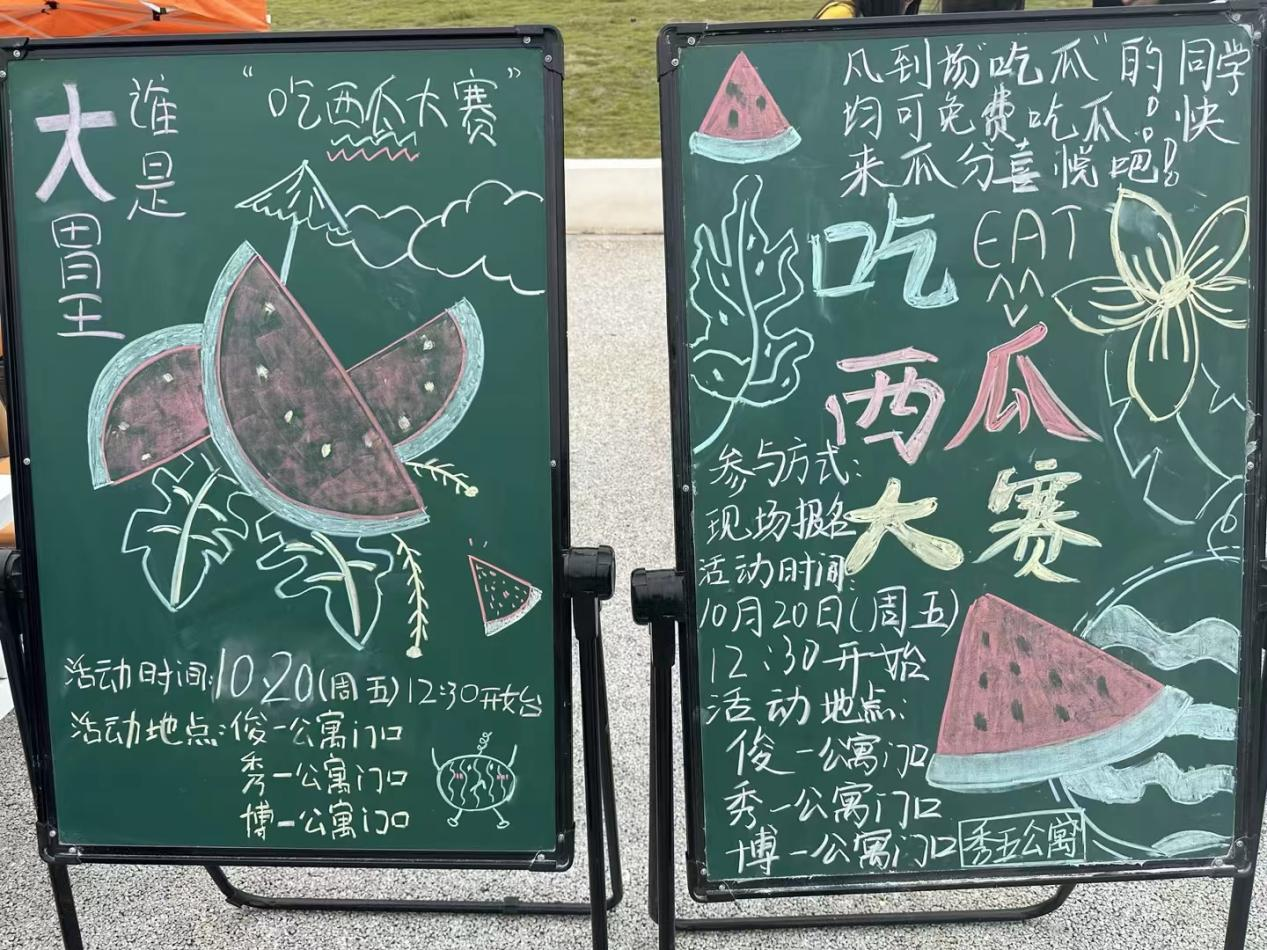 谁是
大胃王
“吃西瓜大赛”
活动时间:10.20(周五)12:30开始
活动地点:俊一公寓门口
秀一公寓门口
博一公寓门口
凡到场“吃瓜”的同学
均可免费吃瓜!快
来瓜分喜悦吧!
吃
EAT
西瓜
大赛
参与方式:
现场报名
活动时间:
10月20日(周五)
12:30开始
活动地点:
俊一公寓门口
秀一公寓门口
博一公寓门口
秀五公寓